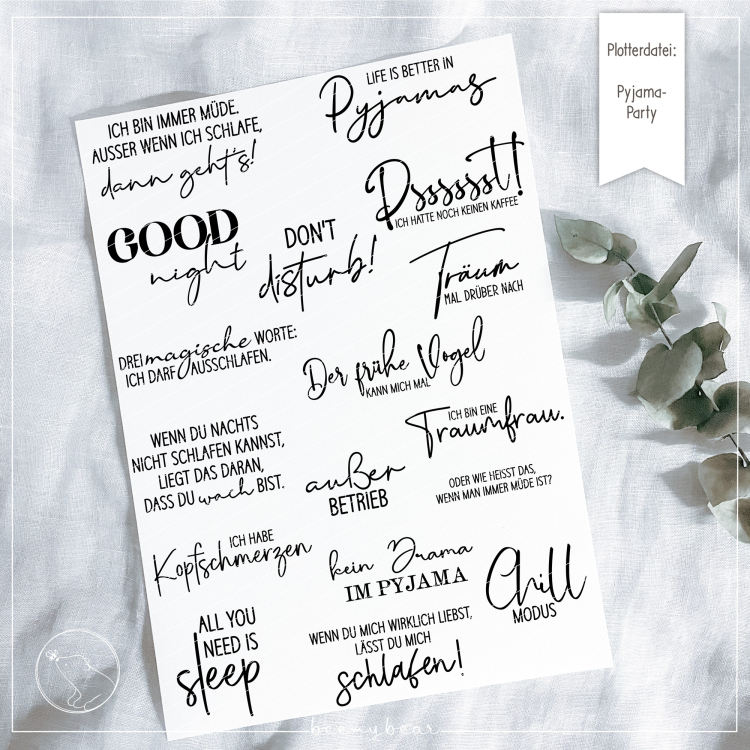 Plotterdatei:
Pyjama-
Party
ICH BIN IMMER MÜDE.
AUSSER WENN ICH SCHLAFE,
dann geht's!
LIFE IS BETTER IN
Pyjamas
Psssssst!
ICH HATTE NOCH KEINEN KAFFEE
GOOD
night
DON'T
disturb!
Träum
MAL DRÜBER NACH
DREI magische WORTE:
ICH DARF AUSSCHLAFEN.
Der frühe Vogel
KANN MICH MAL
ICH BIN EINE
Traumfrau.
ODER WIE HEISST DAS,
WENN MAN IMMER MÜDE IST?
WENN DU NACHTS
NICHT SCHLAFEN KANNST,
LIEGT DAS DARAN,
DASS DU wach BIST.
außer
BETRIEB
ICH HABE
Kopfschmerzen
kein Drama
IM PYJAMA
Chill
MODUS
ALL YOU
NEED IS
sleep
WENN DU MICH WIRKLICH LIEBST,
LÄSST DU MICH
schlafen!
beemybear